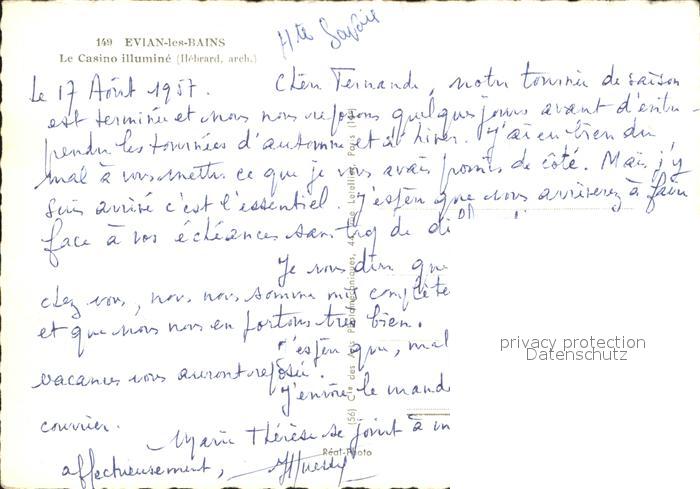 Hte Savoie
149 EVIAN-les-BAINS
Le Casino illuminé (Hébrard, arch.)
Le 17 Août 1957. Chère Fernande, notre tournée de saison
est terminée et nous nous reposons quelques jours avant d'entre-
prendre les tournées d'automne et d'hiver. J'ai eu bien du
mal à vous mettre ce que je vous avais promis de côté. Mais j'y
suis arrivé c'est l'essentiel. J'espère que vous arriverez à faire
face à vos échéances sans trop de di
Je vous dirai que
chez vous, nous nous sommes mis complète
et que nous nous en portons très bien.
J'espère que, mal
vacances vous auront reposée.
J'envoie le manda
courrier.
Marie Thérèse se joint à m
affectueusement,
Réal-Photo
privacy protection
Datenschutz